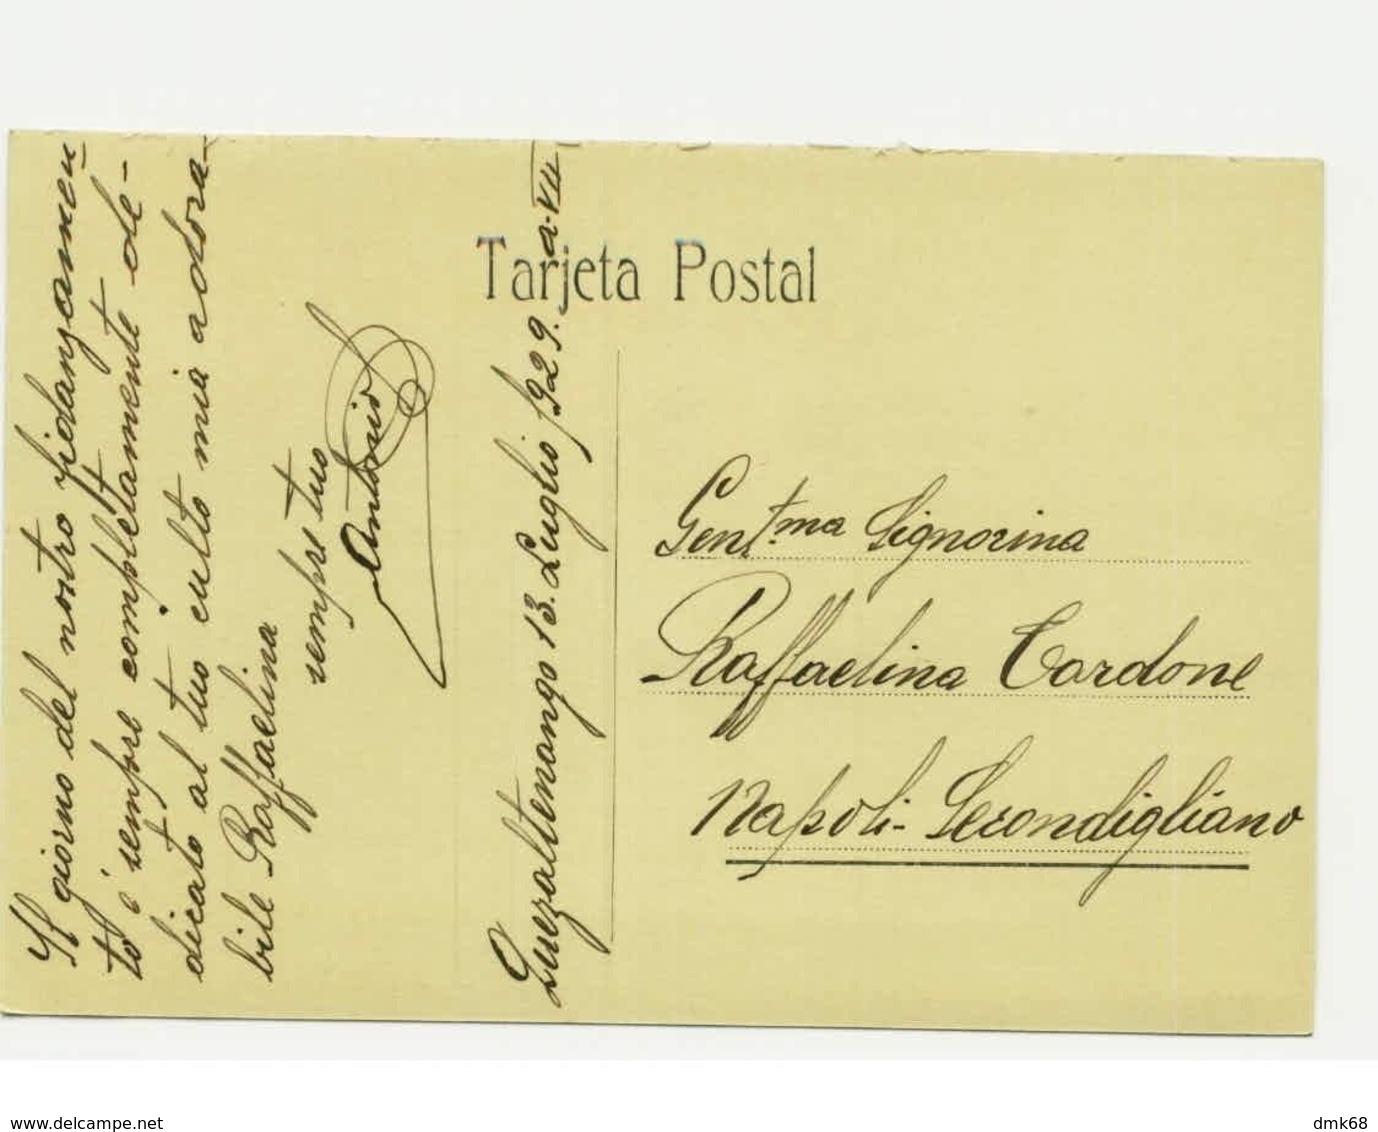 Il giorno del nostro fidanzamen-
to é sempre completamente de-
dicato al tuo culto mia adora-
bile Raffaelina
sempre tuo
Antonio
Quezaltenango 13. Luglio 1929. a. VII
Tarjeta Postal
Gent.ma Signorina
Raffaelina Cardone
Napoli - Secondigliano
www.delcampe.net
dmk68